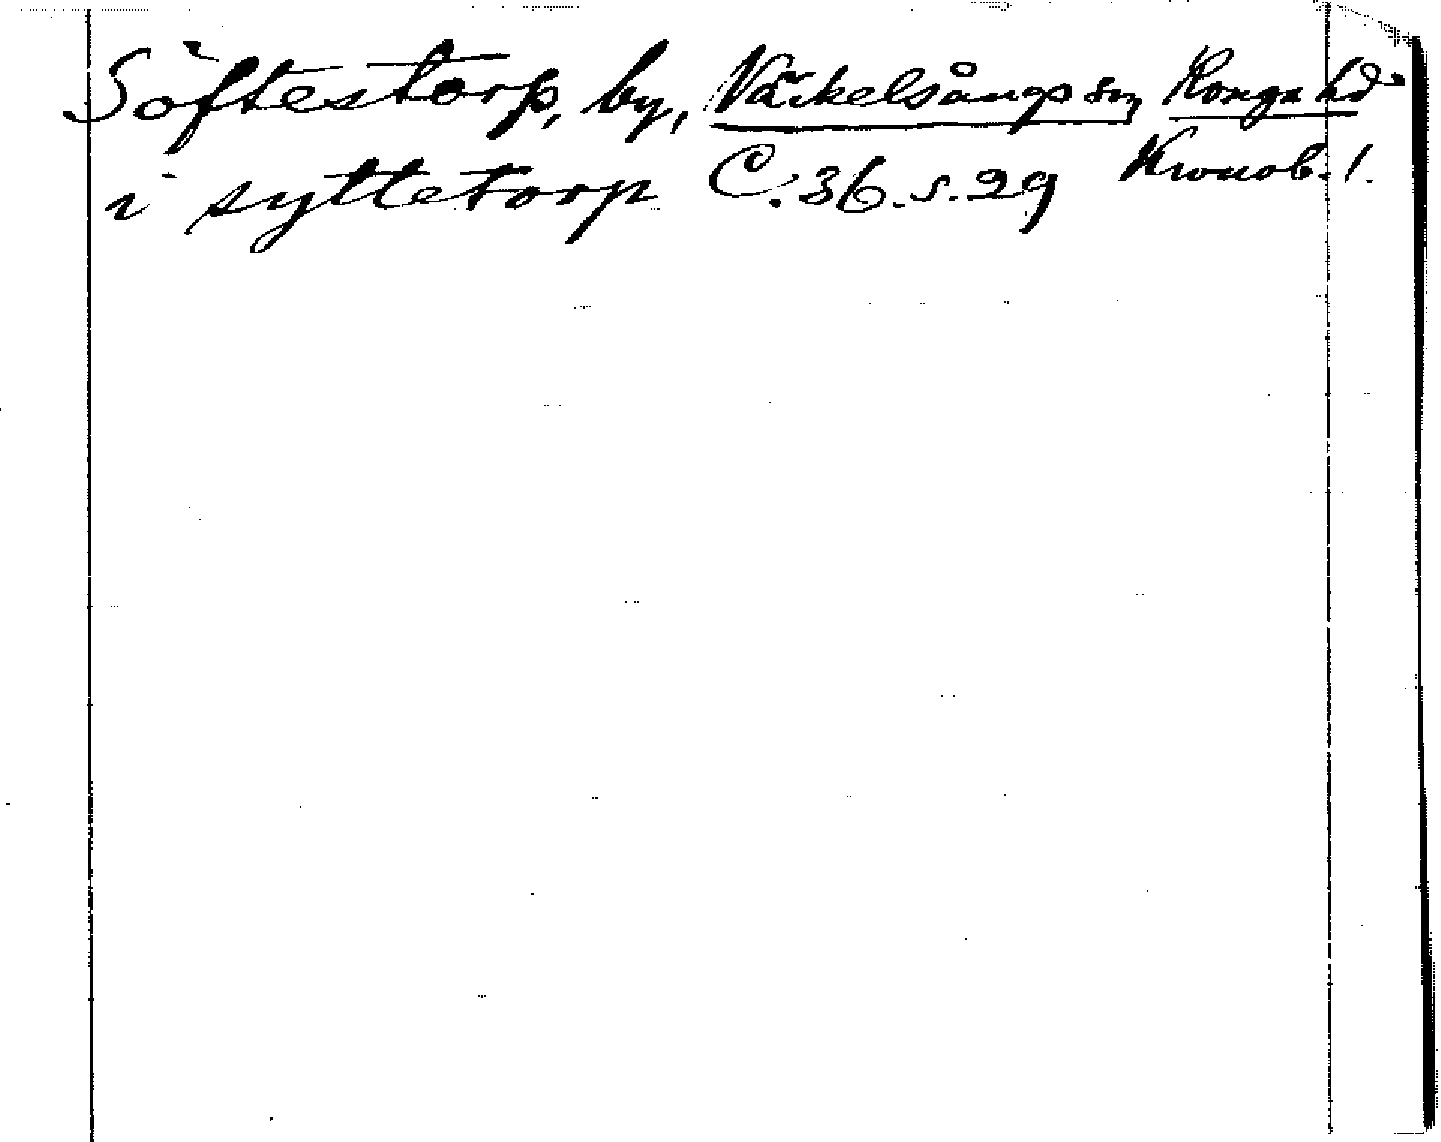 Söftestorp, by, Väckelsångs sn Konga hd
i syttetorp C. 36. s. 29 Kronob. l.